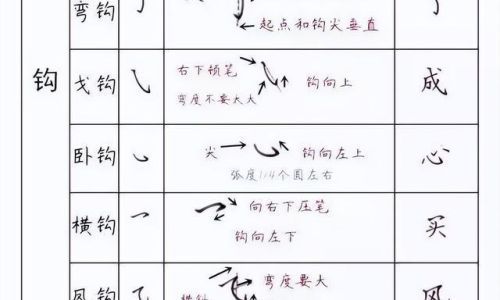 弯钩
起点和钩尖垂直
钩
戈钩
右下顿笔
钩向上
弯度不要太大
成
卧钩
尖
钩向左上
弧度1/4个圆左右
心
横钩
向右下压笔
钩向左下
买
风钩
弯度要大
风